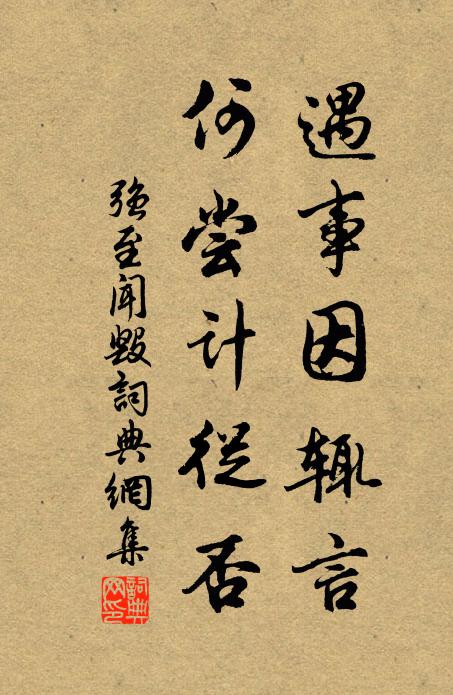 遇事因辄言
何尝计从否
强至闻毁詞典網集
詞典网印